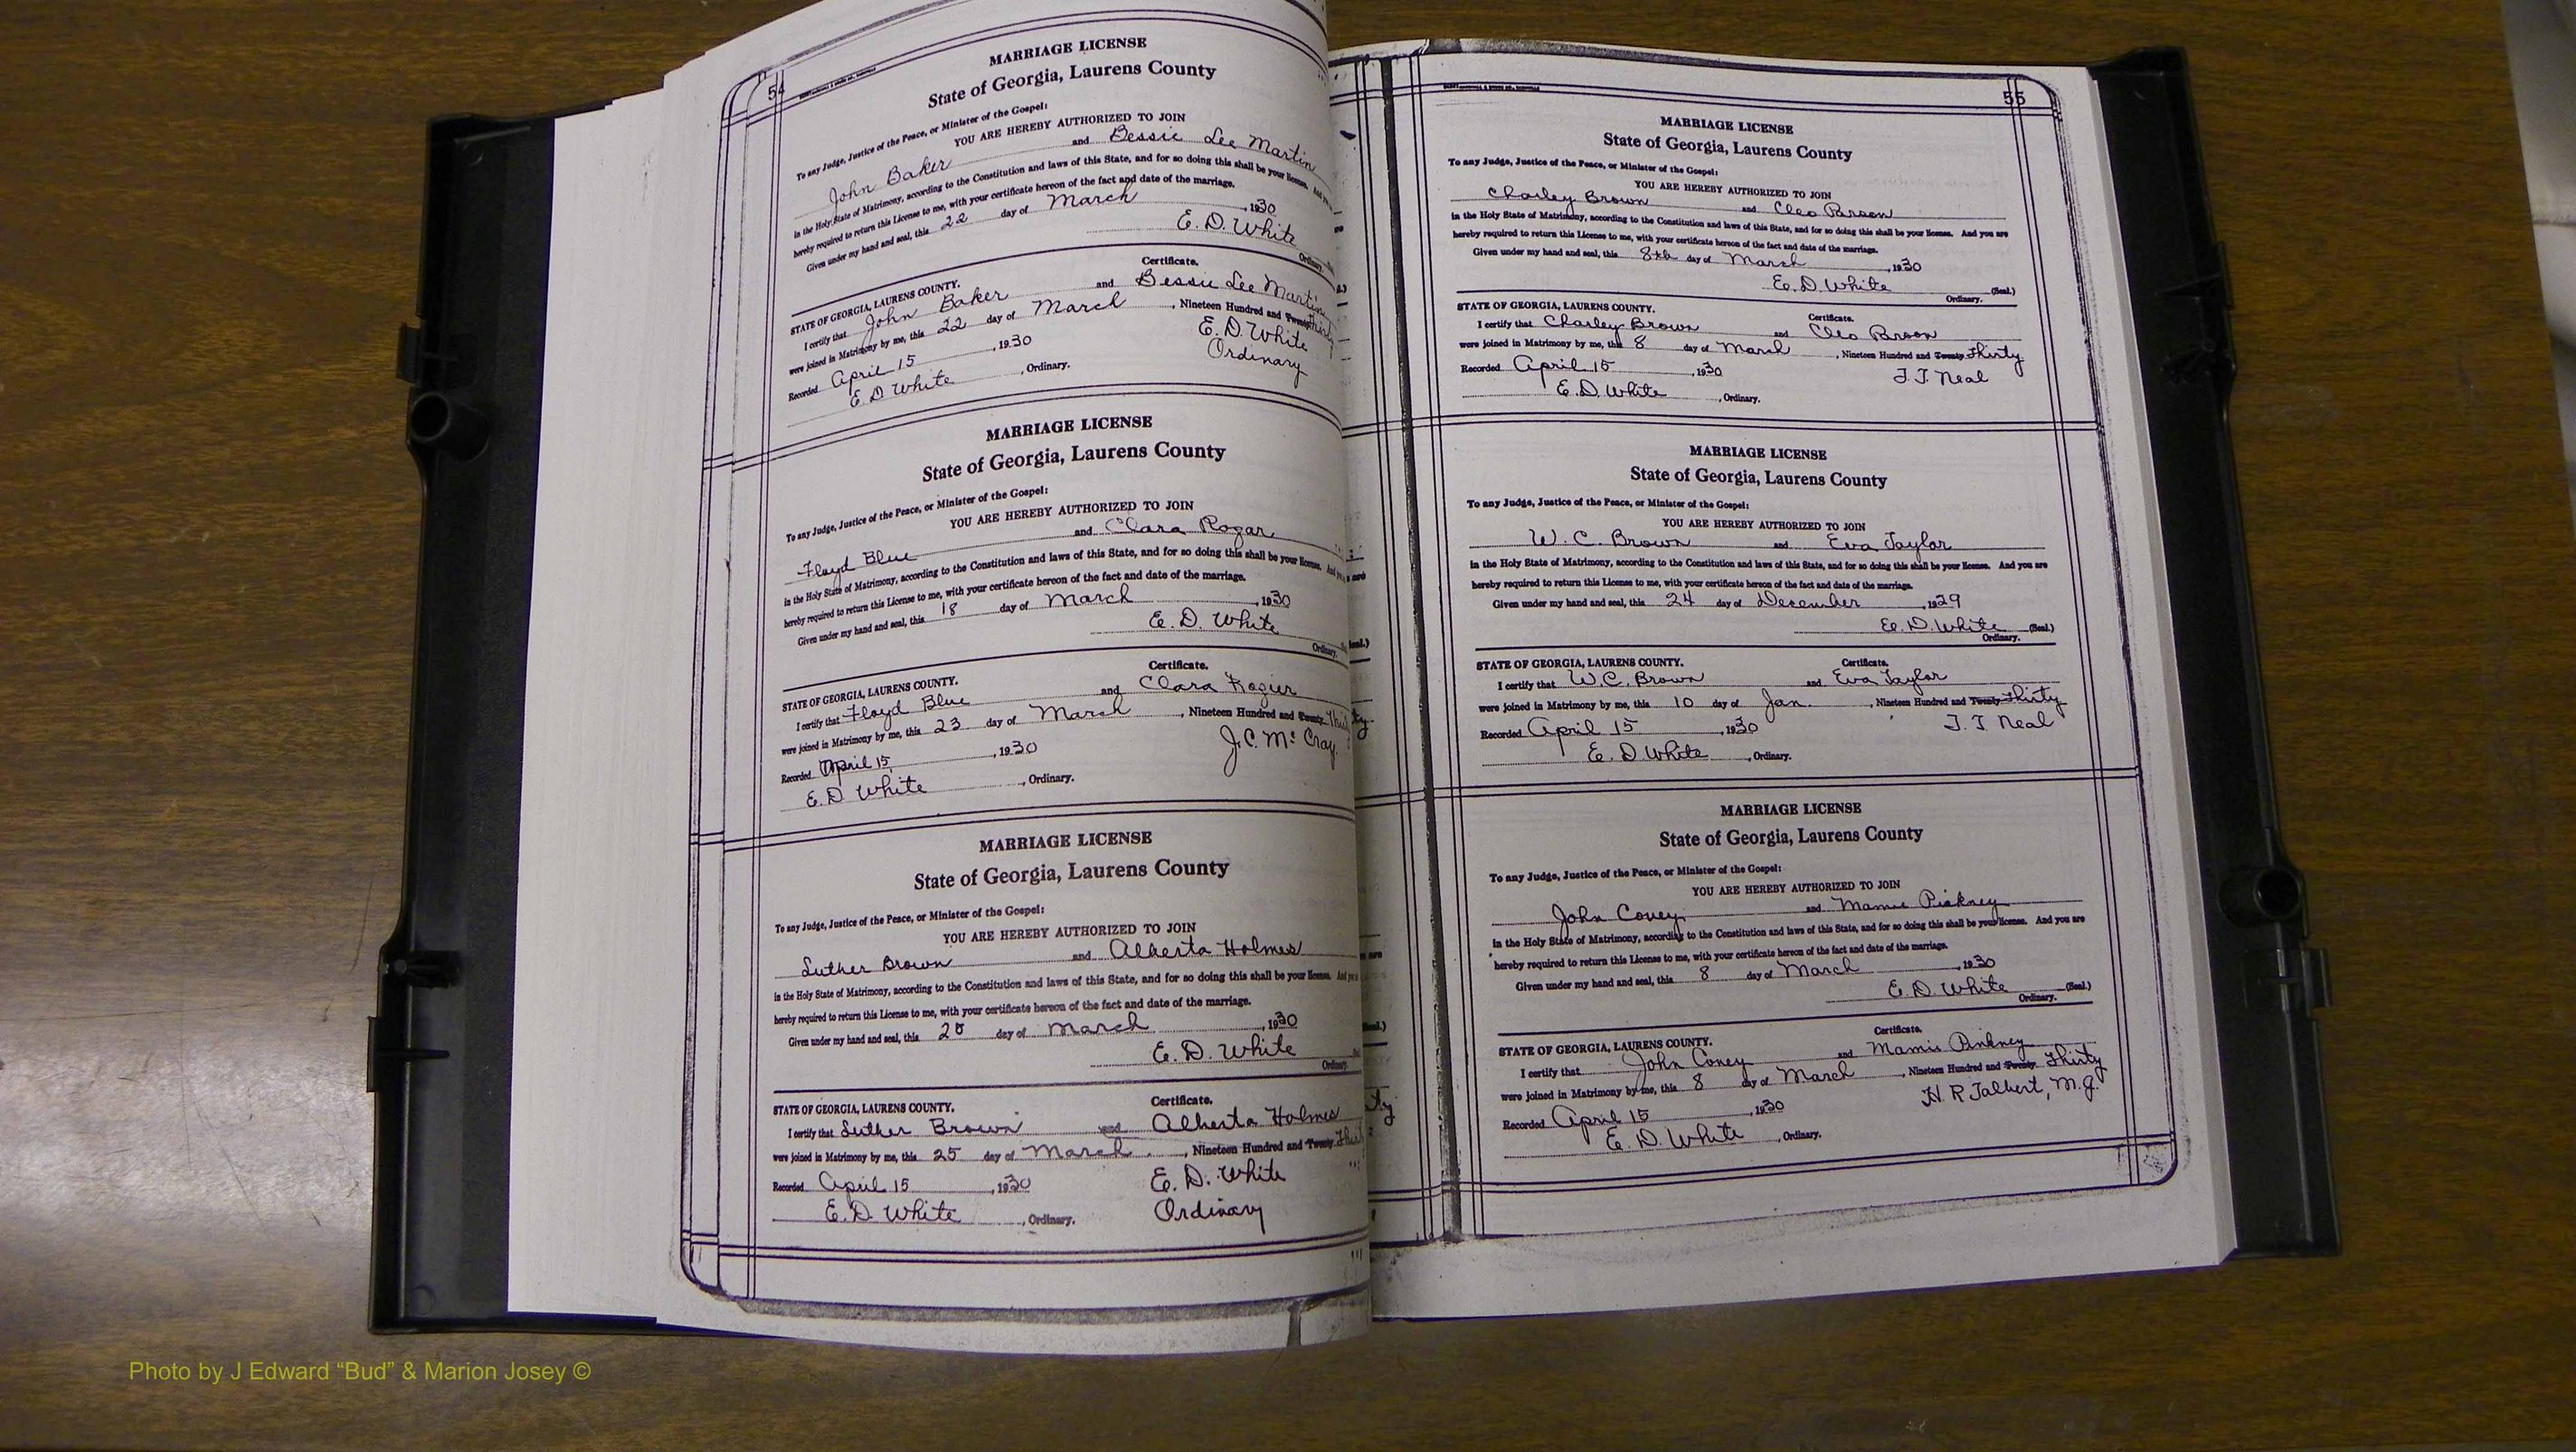 54
MARRIAGE LICENSE
State of Georgia, Laurens County
To any Judge, Justice of the Peace, or Minister of the Gospel:
YOU ARE HEREBY AUTHORIZED TO JOIN
John Baker and Bessie Lee Martin
in the Holy State of Matrimony, according to the Constitution and laws of this State, and for so doing this shall be your license. And
hereby required to return this License to me, with your certificate hereon of the fact and date of the marriage.
Given under my hand and seal, this 22 day of March, 1930
E. D. White
Ordinary.
Certificate.
STATE OF GEORGIA, LAURENS COUNTY.
I certify that John Baker and Bessie Lee Martin
were joined in Matrimony by me, this 22 day of March, Nineteen Hundred and Twenty Thirty
Recorded April 15, 1930 E. D. White
E. D White, Ordinary. Ordinary
MARRIAGE LICENSE
State of Georgia, Laurens County
To any Judge, Justice of the Peace, or Minister of the Gospel:
YOU ARE HEREBY AUTHORIZED TO JOIN
Floyd Blue and Clara Rozar
in the Holy State of Matrimony, according to the Constitution and laws of this State, and for so doing this shall be your license. And
hereby required to return this License to me, with your certificate hereon of the fact and date of the marriage.
Given under my hand and seal, this 18 day of March, 1930
E. D. White
Ordinary.
Certificate.
STATE OF GEORGIA, LAURENS COUNTY.
I certify that Floyd Blue and Clara Rozier
were joined in Matrimony by me, this 23 day of March, Nineteen Hundred and Twenty Thirty
Recorded April 15, 1930 J. C. McCray
E. D White, Ordinary.
MARRIAGE LICENSE
State of Georgia, Laurens County
To any Judge, Justice of the Peace, or Minister of the Gospel:
YOU ARE HEREBY AUTHORIZED TO JOIN
Luther Brown and Alberta Holmes
in the Holy State of Matrimony, according to the Constitution and laws of this State, and for so doing this shall be your license. And
hereby required to return this License to me, with your certificate hereon of the fact and date of the marriage.
Given under my hand and seal, this day of March, 1930
E. D. White
Ordinary.
Certificate.
STATE OF GEORGIA, LAURENS COUNTY.
I certify that Luther Brown and Alberta Holmes
were joined in Matrimony by me, this 25 day of March, Nineteen Hundred and Twenty
Recorded April 15, 1930 E. D. White
E. D. White, Ordinary. Ordinary
55
MARRIAGE LICENSE
State of Georgia, Laurens County
To any Judge, Justice of the Peace, or Minister of the Gospel:
YOU ARE HEREBY AUTHORIZED TO JOIN
Charley Brown and Cleo Parson
in the Holy State of Matrimony, according to the Constitution and laws of this State, and for so doing this shall be your license. And you are
hereby required to return this License to me, with your certificate hereon of the fact and date of the marriage.
Given under my hand and seal, this 8th day of March, 1930
E. D. White (Seal.)
Ordinary.
Certificate.
STATE OF GEORGIA, LAURENS COUNTY.
I certify that Charley Brown and Cleo Parson
were joined in Matrimony by me, this 8 day of March, Nineteen Hundred and Twenty Thirty
Recorded April 15, 1930 J. J. Neal
E. D. White, Ordinary.
MARRIAGE LICENSE
State of Georgia, Laurens County
To any Judge, Justice of the Peace, or Minister of the Gospel:
YOU ARE HEREBY AUTHORIZED TO JOIN
W. C. Brown and Eva Taylor
in the Holy State of Matrimony, according to the Constitution and laws of this State, and for so doing this shall be your license. And you are
hereby required to return this License to me, with your certificate hereon of the fact and date of the marriage.
Given under my hand and seal, this 24 day of December, 1929
E. D. White (Seal.)
Ordinary.
Certificate.
STATE OF GEORGIA, LAURENS COUNTY.
I certify that W. C. Brown and Eva Taylor
were joined in Matrimony by me, this 10 day of Jan., Nineteen Hundred and Twenty Thirty
Recorded April 15, 1930 J. J. Neal
E. D White, Ordinary.
MARRIAGE LICENSE
State of Georgia, Laurens County
To any Judge, Justice of the Peace, or Minister of the Gospel:
YOU ARE HEREBY AUTHORIZED TO JOIN
John Coney and Mamie Pinkney
in the Holy State of Matrimony, according to the Constitution and laws of this State, and for so doing this shall be your license. And you are
hereby required to return this License to me, with your certificate hereon of the fact and date of the marriage.
Given under my hand and seal, this 8 day of March, 1930
E. D. White (Seal.)
Ordinary.
Certificate.
STATE OF GEORGIA, LAURENS COUNTY.
I certify that John Coney and Mamie Pinkney
were joined in Matrimony by me, this 8 day of March, Nineteen Hundred and Twenty Thirty
Recorded April 15, 1930 H. R Talbert, M.G.
E. D. White, Ordinary.
Photo by J Edward “Bud” & Marion Josey ©